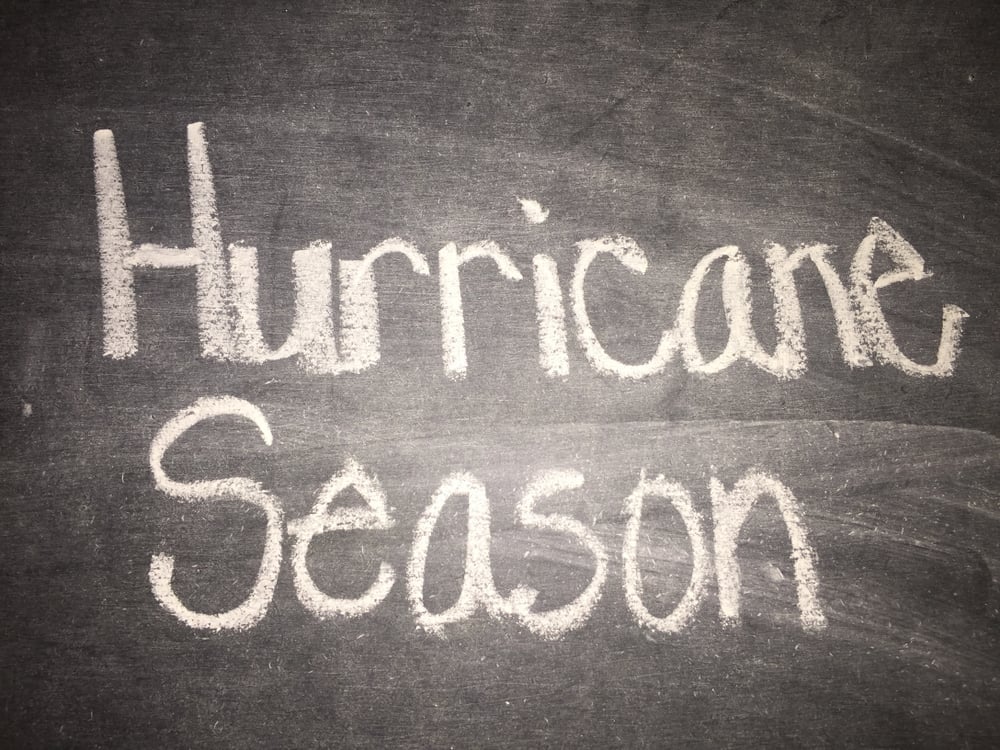 Hurricane
Season